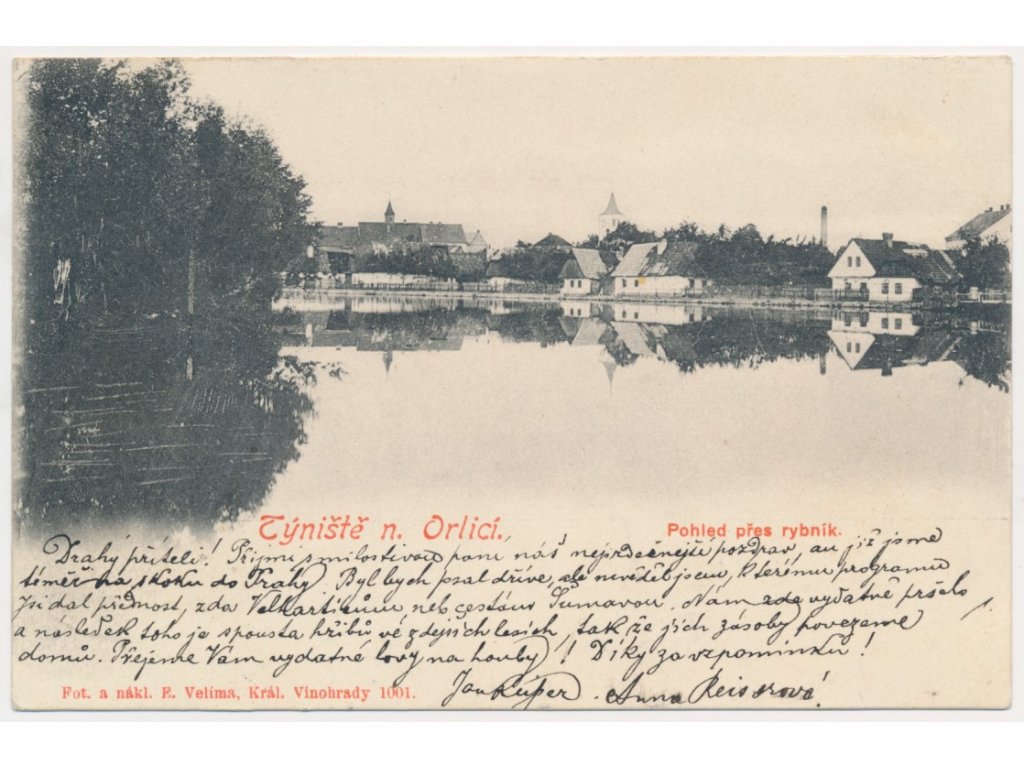 Týniště n. Orlicí.
Pohled přes rybník.
Drahý příteli! Přijmi s milostivou paní náš nejsrdečnější pozdrav, an již jsme
téměř na skoku do Prahy. Byl bych psal dříve, ale nevěděl jsem, kterému programu
jsi dal přednost, zda neb cestám Šumavou. Nám zde vydatně pršelo
a následek toho je spousta hřibů ve zdejších lesích, tak že jich zásoby povezeme
domů. Přejeme Vám vydatné lovy na houby! Díky za vzpomínku!
Jan . Anna
Fot. a nákl. E. Velíma, Král. Vinohrady 1001.